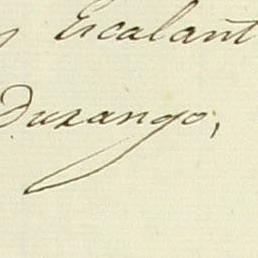 y Escalant
Durango,